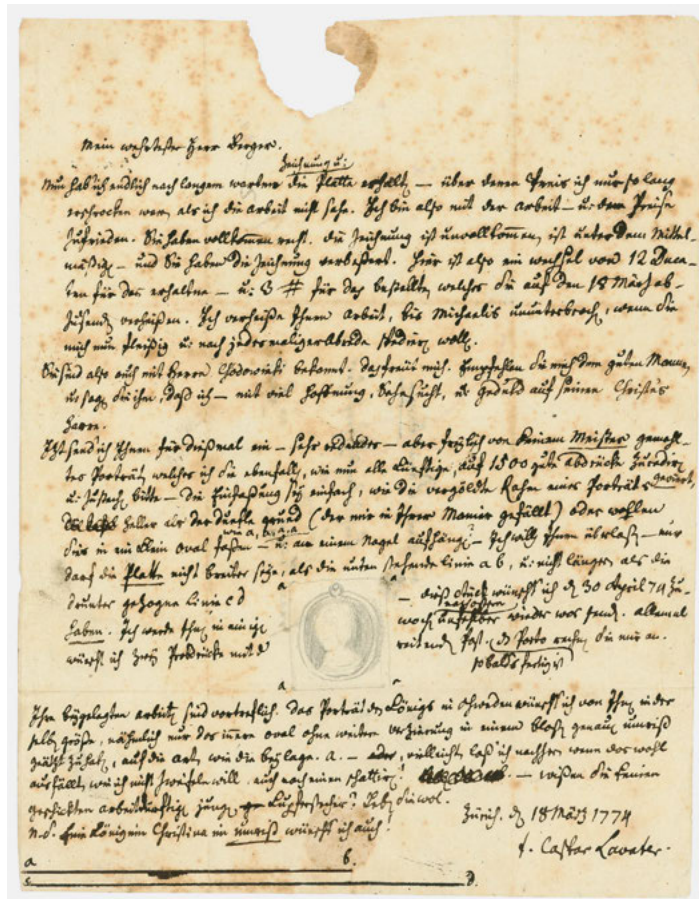 Mein wehrtester Herr Berger.
Zeichnung u:
Nun hab' ich endlich nach langem warten die Platte erhalten — über deren Preis ich nur so lang
erschrocken war, als ich die Arbeit nicht sahe. Ich bin also mit der Arbeit — u: dem Preise
zufrieden. Sie haben vollkommen recht. die Zeichnung ist unvollkommen, ist unter dem Mittel-
mäßigen — und Sie haben die Zeichnung verbeßert. Hier ist also ein wechsel von 12 Duca-
ten für das erhaltne — u: 8 # für das bestellte, welches Sie auf den 18 März ab-
zusenden verheißen. Ich verheiße Ihnen Arbeit, bis Michaelis ununterbrochen, wenn Sie
mich nun fleißig u: nach jedesmaliger Abrede bedienen wollen.
Sie sind also auch mit Herrn Chodowieki bekannt. das freut mich. Empfehlen Sie mich dem guten Manne,
u: sagen Sie ihm, daß ich — mit viel Hoffnung, Sehnsucht, u: Geduld auf seinen Christus
harre.
Izt send ich Ihnen für dießmal ein — sehr redendes — aber freylich von keinem Meister gemahl-
tes Porträt, welches ich Sie ebenfalls, wie nun alle künftige, auf 1500 gute abdrücke zu
geviert,
u: zu stechen bitte — Die Einfaßung sey einfach, wie die vergoldte Rahm eines Porträts
heller als der dunkle grund (der mir in Ihrer Manier gefällt) oder wollen
wie a, b. a. a
Sie's in ein klein oval faßen — u: an einem Nagel aufhängen? — Ich will's Ihnen überlaßen — nur
darf die Platte nicht breiter seyn, als die unten stehende linie a b, u: nicht länger, als die
drunter gezogne linie c d
a
— dieß Stück wünscht' ich d 30 April 74 zu-
haben. Ich werde Ihnen in einigen
wochen wieder was senden. allemal
wünscht ich zwey Probdrücke mit d
reitenden Post. das Porto rechnen Sie mir an.
so bald's fertig ist
a
Ihre beygelegten arbeiten sind vortreflich. Das Porträt des Königs in schweden wünscht' ich von Ihnen in der
selben größe, nähmlich nur das innere oval ohne weitere verzierung in einem bloßen genauen umriß
geäzt zu haben, auf die art, wie die beylage. a. — oder, vielleicht laß ich nachher wenn das wohl
ausfällt, wie ich nicht zweifeln will, auch noch einen schattiren! b. — wißen Sie keinen
geschickten arbeitdürftigen jungen Kupferstecher? Leben Sie wol.
Zürich. d 18 März 1774
N.S. Eine Königinn Christina im umriß wünscht' ich auch!
J. Caspar Lavater.
a. b.
c. D.